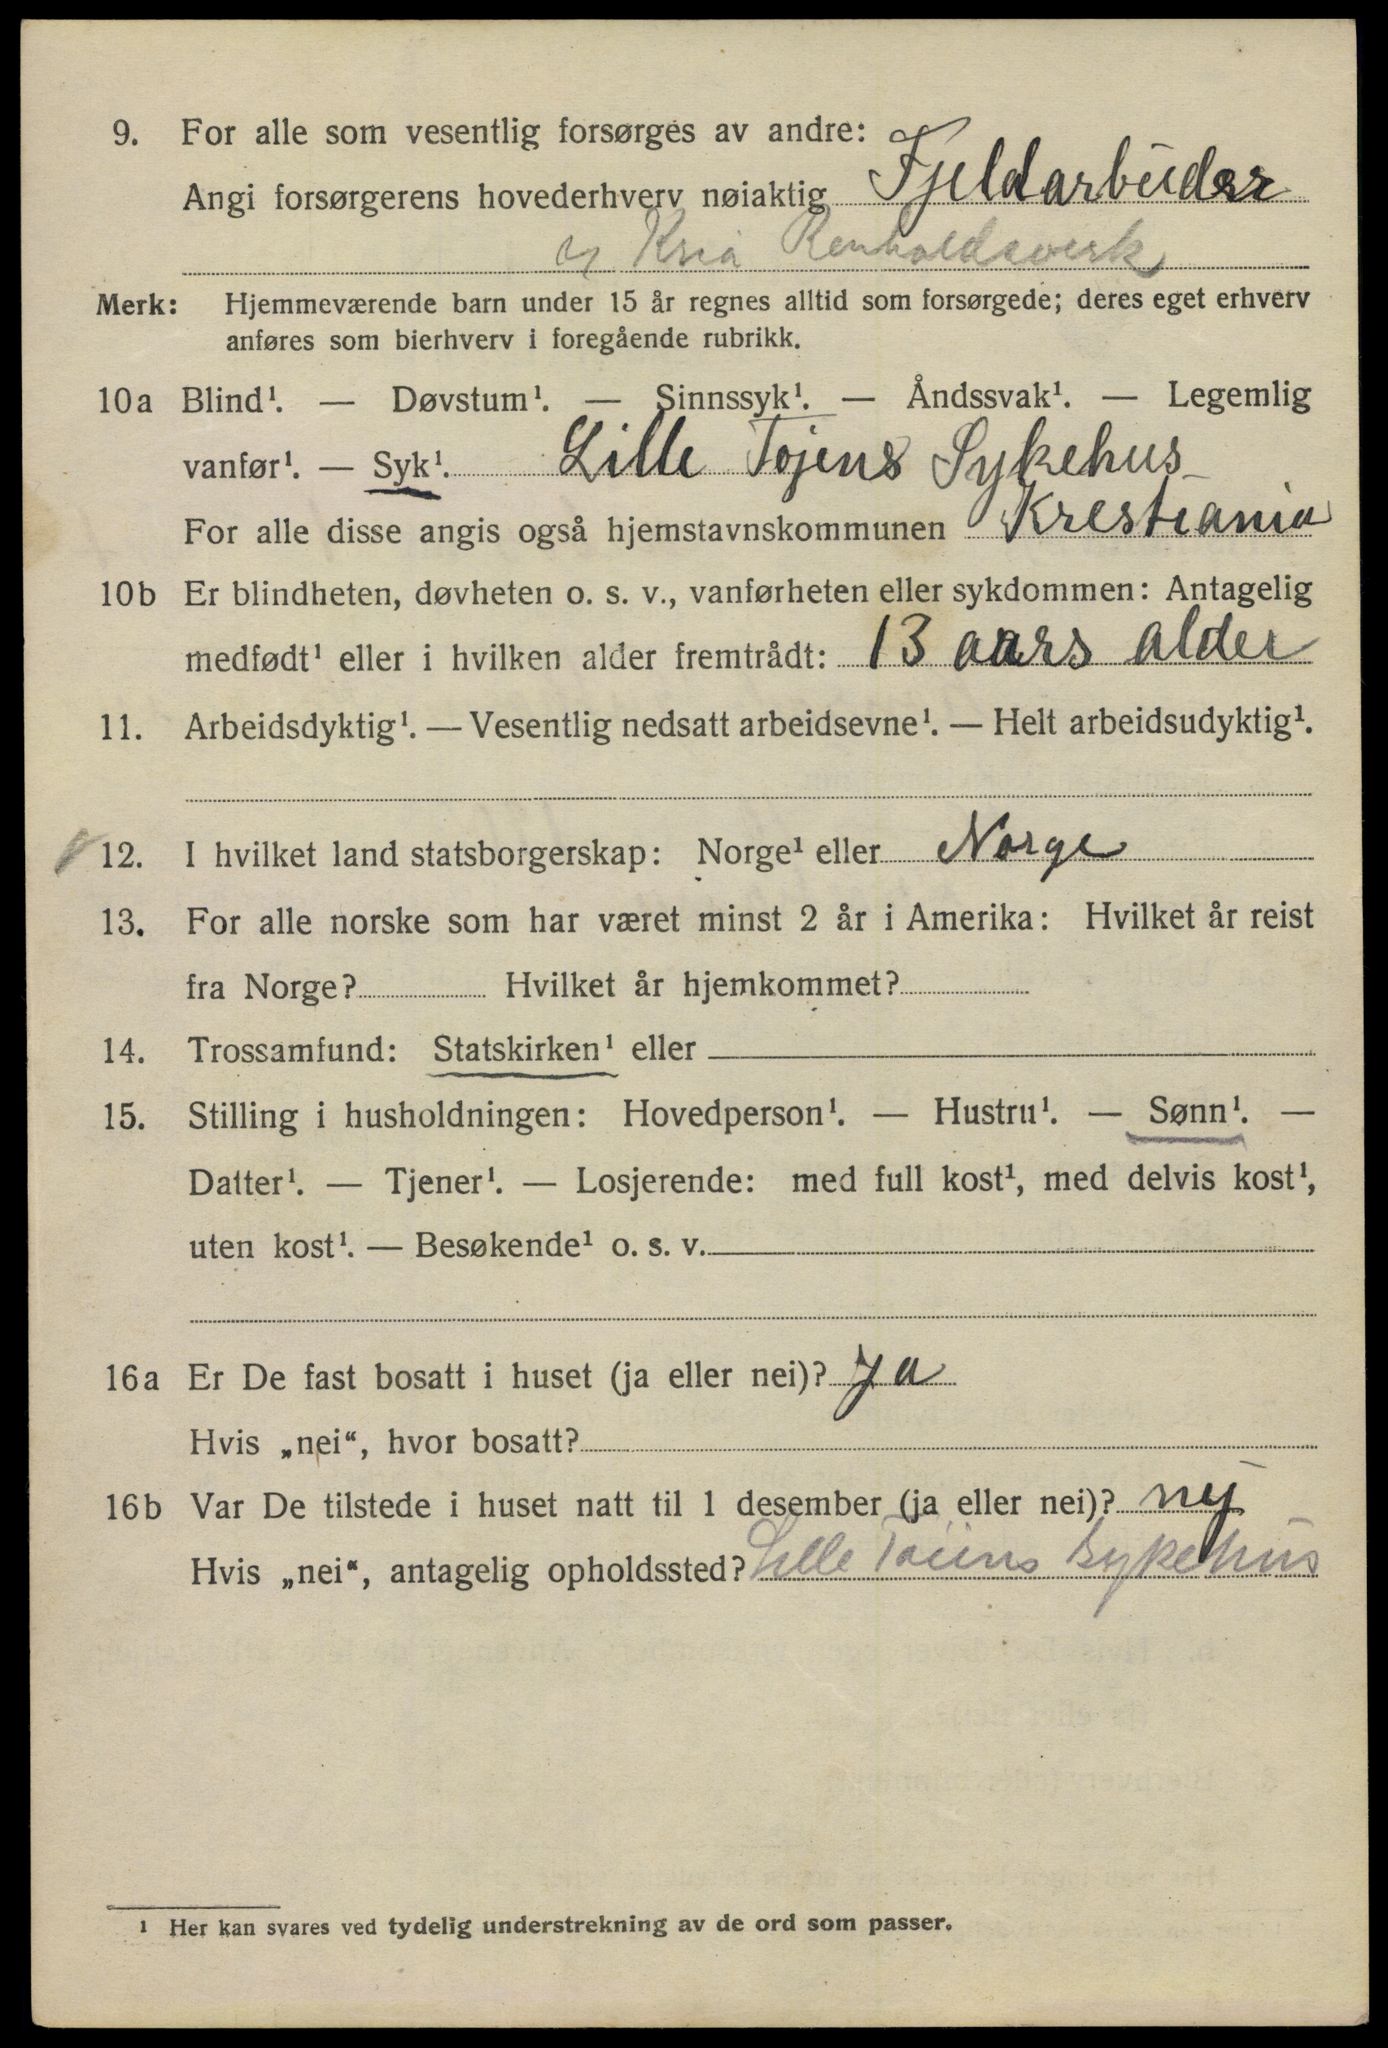 9. For alle som vesentlig forsørges av andre:
Angi forsørgerens hovederhverv nøiaktig Fjeldarbeider
v Kria Renholdsverk
Merk: Hjemmeværende barn under 15 år regnes alltid som forsørgede; deres eget erhverv
anføres som bierhverv i foregående rubrikk.
10a Blind¹. — Døvstum¹. — Sinnssyk¹. — Åndssvak¹. — Legemlig
vanfør¹. — Syk¹. Lille Tøjens Sykehus
For alle disse angis også hjemstavnskommunen Krestiania
10b Er blindheten, døvheten o. s. v., vanførheten eller sykdommen: Antagelig
medfødt¹ eller i hvilken alder fremtrådt: 13 aars alder
11. Arbeidsdyktig¹. — Vesentlig nedsatt arbeidsevne¹. — Helt arbeidsudyktig¹.
12. I hvilket land statsborgerskap: Norge¹ eller Norge
13. For alle norske som har været minst 2 år i Amerika: Hvilket år reist
fra Norge? Hvilket år hjemkommet?
14. Trossamfund: Statskirken¹ eller
15. Stilling i husholdningen: Hovedperson¹. — Hustru¹. — Sønn¹. —
Datter¹. — Tjener¹. — Losjerende: med full kost¹, med delvis kost¹,
uten kost¹. — Besøkende¹ o. s. v.
16a Er De fast bosatt i huset (ja eller nei)? ja
Hvis „nei“, hvor bosatt?
16b Var De tilstede i huset natt til 1 desember (ja eller nei)? nij
Hvis „nei“, antagelig opholdssted? Lille Tøiens Sykehus
¹ Her kan svares ved tydelig understrekning av de ord som passer.